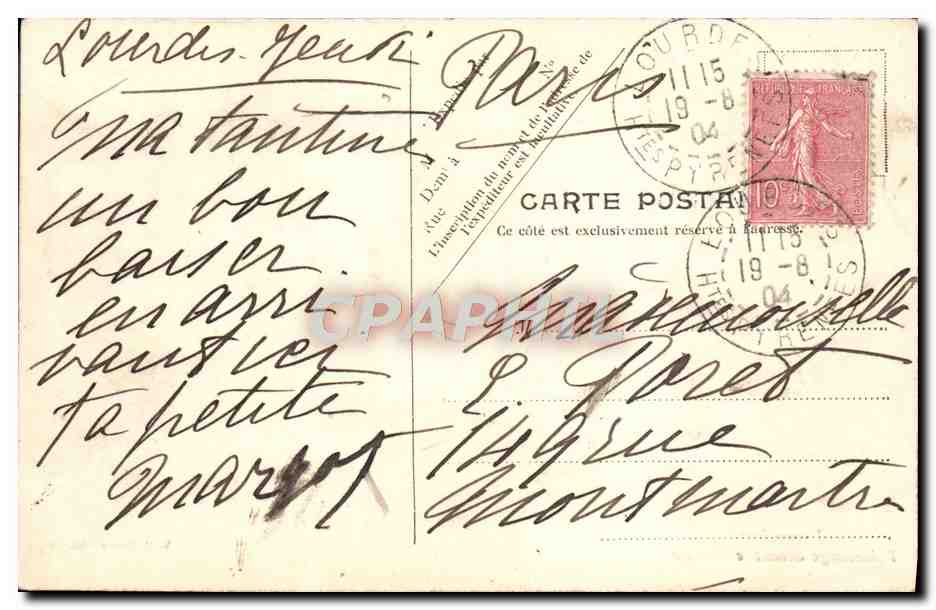 Lourdes Jeudi
ma tantine
un bon
baiser
en arri
vant ici
ta petite
Margot
Paris
Nº
M
Demt à
Rue
L'inscription du nom et de l'adresse de
l'expéditeur est facultative.
CARTE POSTALE
Ce côté est exclusivement réservé à l'adresse.
LOURDES
11 15
19 -8
04
HTES PYRENEES
REPUBLIQUE FRANÇAISE
10c
POSTES
LOURDES
11 15
19 -8
04
HTES PYRENEES
CPAPHIL
Mademoiselle
L. Poret
149 rue
Montmartre